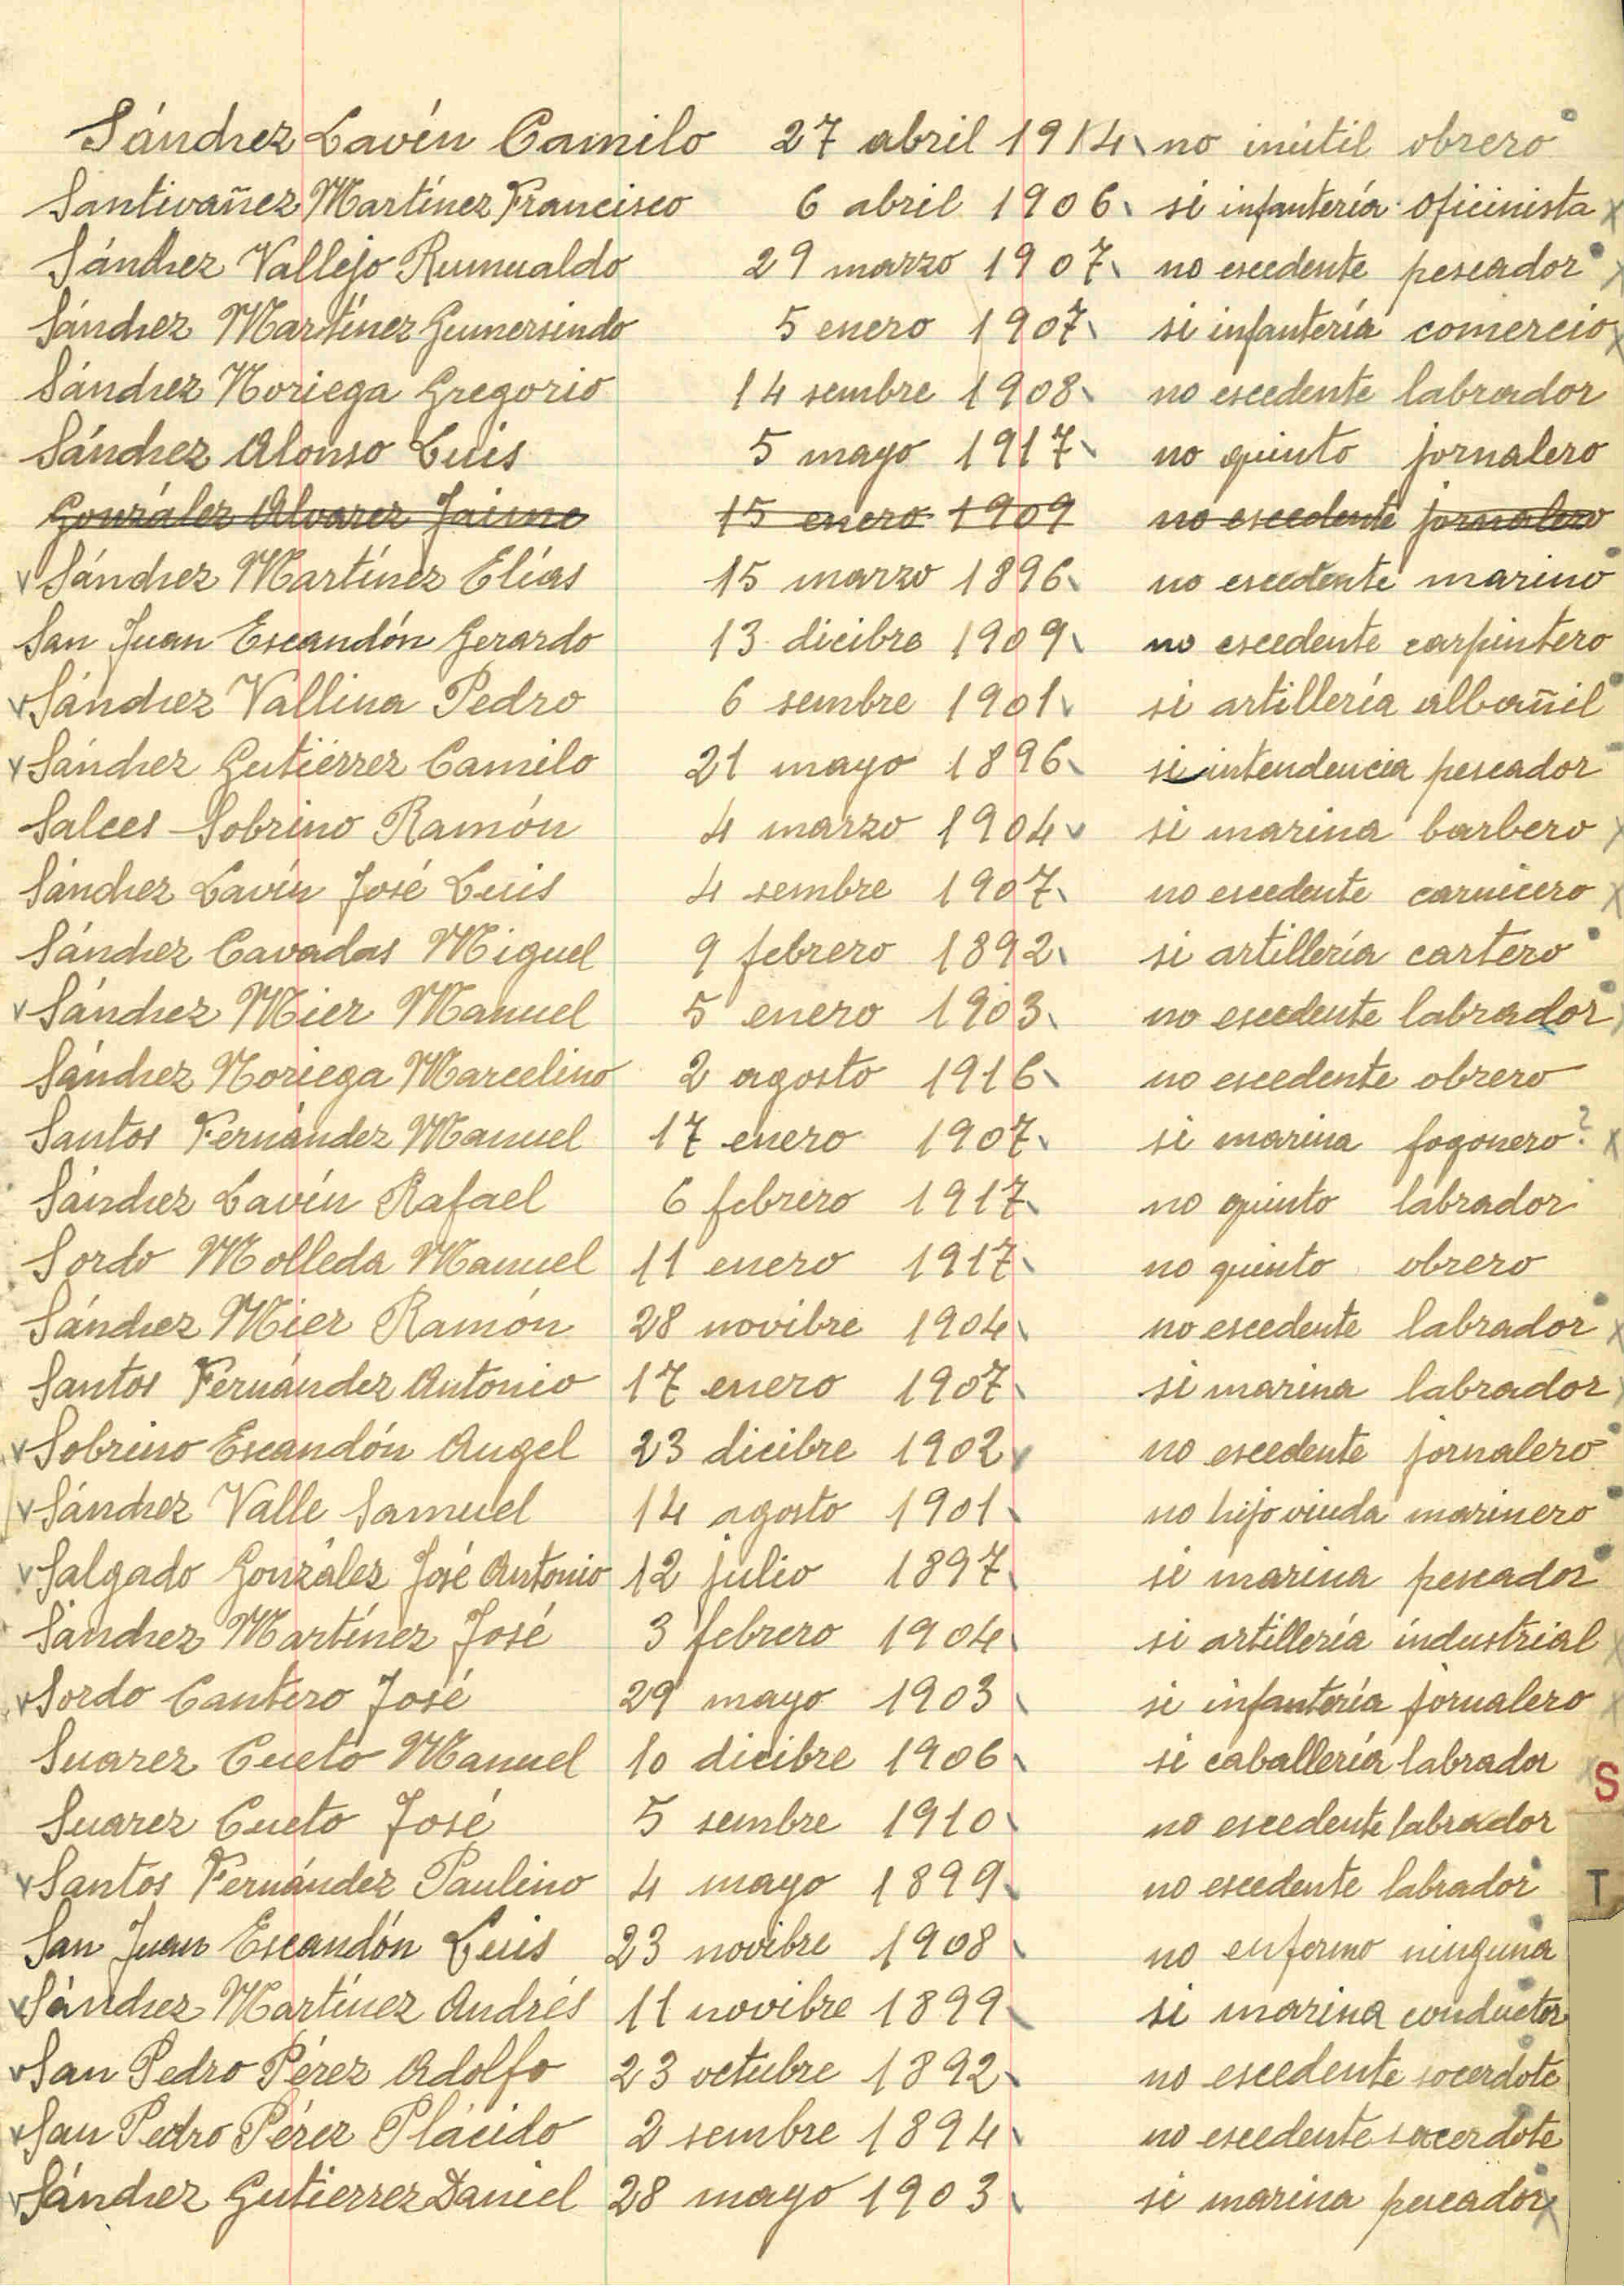 Sánchez Lavín Camilo 27 abril 1914 no inútil obrero
Santivañez Martínez Francisco 6 abril 1906 si infantería oficinista x
Sánchez Vallejo Rumualdo 29 marzo 1907 no escedente pescador x
Sánchez Martínez Gumersindo 5 enero 1907 si infantería comercio x
Sánchez Noriega Gregorio 14 sembre 1908 no escedente labrador
Sánchez Alonso Luis 5 mayo 1917 no quinto jornalero
González Alvarez Jaime 15 enero 1909 no escedente jornalero
v Sánchez Martínez Elías 15 marzo 1896 no escedente marino
San Juan Escandón Gerardo 13 dicibre 1909 no escedente carpintero
v Sánchez Vallina Pedro 6 sembre 1901 si artillería albañil
v Sánchez Gutiérrez Camilo 21 mayo 1896 si intendencia pescador
Salces Sobrino Ramón 4 marzo 1904 si marina barbero x
Sánchez Lavín José Luis 4 sembre 1907 no escedente carnicero x
Sánchez Cavadas Miguel 9 febrero 1892 si artillería cartero
v Sánchez Mier Manuel 5 enero 1903 no escedente labrador
Sánchez Noriega Marcelino 2 agosto 1916 no escedente obrero
Santos Fernández Manuel 17 enero 1907 si marina fogonero ? x
Sánchez Lavín Rafael 6 febrero 1917 no quinto labrador
Sordo Molleda Manuel 11 enero 1917 no quinto obrero
Sánchez Mier Ramón 28 novibre 1904 no escedente labrador x
Santos Fernández Antonio 17 enero 1907 si marina labrador
v Sobrino Escandón Angel 23 dicibre 1902 no escedente jornalero
v Sánchez Valle Samuel 14 agosto 1901 no hijo viuda marinero
v Salgado González José Antonio 12 julio 1897 si marina pescador
Sánchez Martínez José 3 febrero 1904 si artillería industrial x
v Sordo Cantero José 29 mayo 1903 si infantería jornalero x
Suarez Cueto Manuel 10 dicibre 1906 si caballería labrador
S
Suarez Cueto José 5 sembre 1910 no escedente labrador
v Santos Fernández Paulino 4 mayo 1899 no escedente labrador
T
San Juan Escandón Luis 23 novibre 1908 no enfermo ninguna
v Sánchez Martínez Andrés 11 novibre 1899 si marina conductor
v San Pedro Pérez Adolfo 23 octubre 1892 no escedente socerdote
v San Pedro Pérez Plácido 2 sembre 1894 no escedente sacerdote
v Sánchez Gutierrez Daniel 28 mayo 1903 si marina pescador x